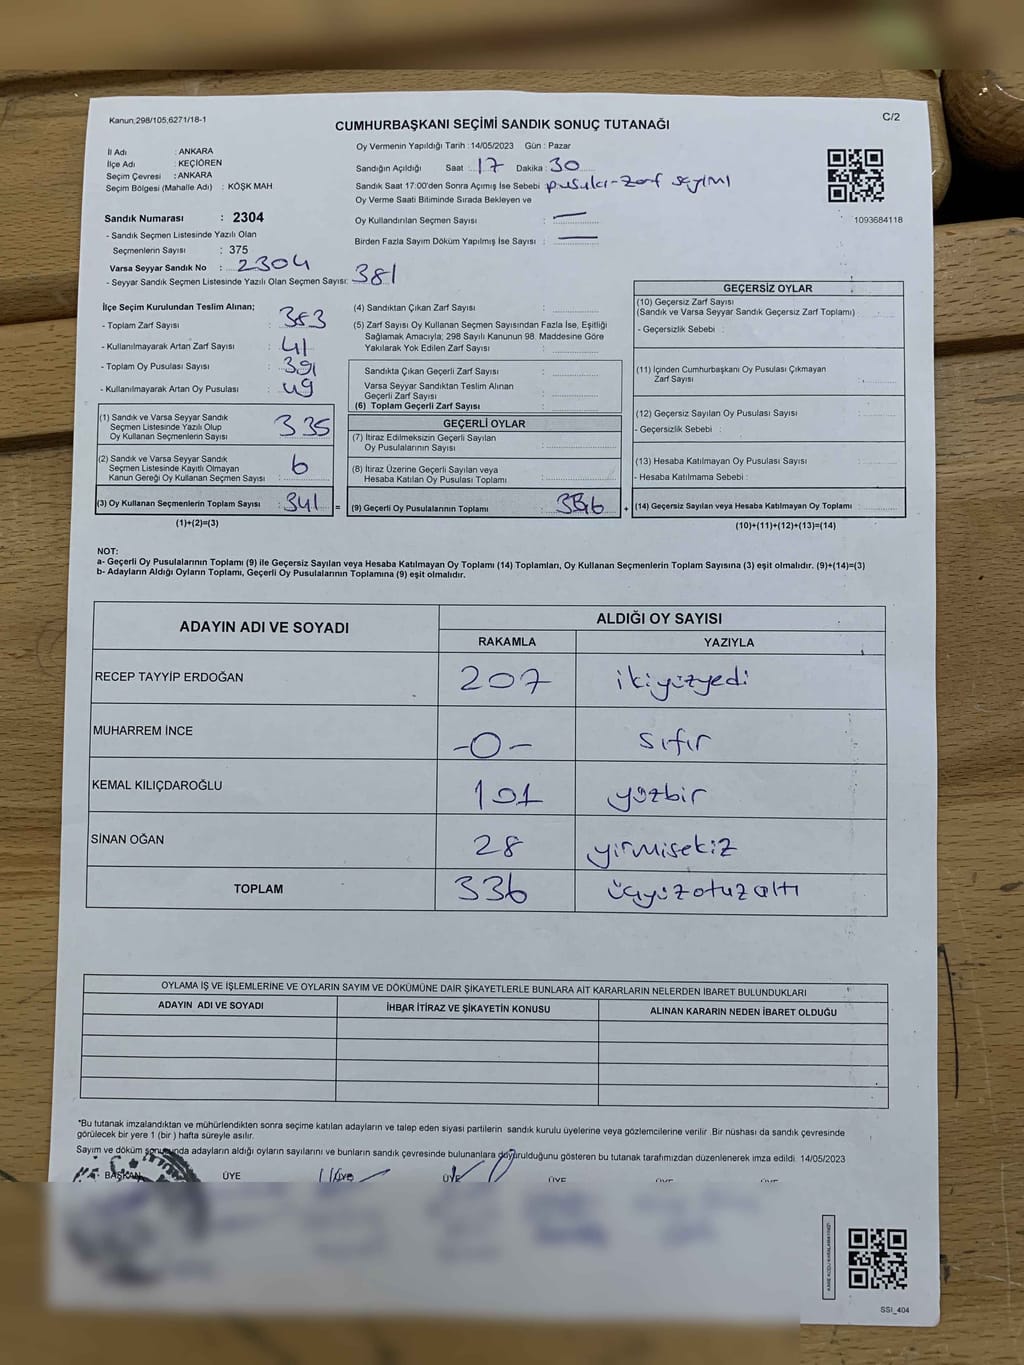 Kanun;298/105,6271/18-1
C/2
CUMHURBAŞKANI SEÇİMİ SANDIK SONUÇ TUTANAĞI
İl Adı : ANKARA
İlçe Adı : KEÇİÖREN
Seçim Çevresi : ANKARA
Seçim Bölgesi (Mahalle Adı) : KÖŞK MAH.
Oy Vermenin Yapıldığı Tarih : 14/05/2023 Gün : Pazar
Sandığın Açıldığı Saat : 17 Dakika : 30
Sandık Saat 17:00'den Sonra Açımış İse Sebebi pusula-zarf sayımı
Oy Verme Saati Bitiminde Sırada Bekleyen ve
Oy Kullandırılan Seçmen Sayısı : —
Birden Fazla Sayım Döküm Yapılmış İse Sayısı : —
1093684118
Sandık Numarası : 2304
- Sandık Seçmen Listesinde Yazılı Olan
Seçmenlerin Sayısı : 375
Varsa Seyyar Sandık No : 2304
- Seyyar Sandık Seçmen Listesinde Yazılı Olan Seçmen Sayısı: 381
İlçe Seçim Kurulundan Teslim Alınan;
- Toplam Zarf Sayısı : 383
- Kullanılmayarak Artan Zarf Sayısı : 41
- Toplam Oy Pusulası Sayısı : 391
- Kullanılmayarak Artan Oy Pusulası : 49
(1) Sandık ve Varsa Seyyar Sandık
Seçmen Listesinde Yazılı Olup
Oy Kullanan Seçmenlerin Sayısı : 335
(2) Sandık ve Varsa Seyyar Sandık
Seçmen Listesinde Kayıtlı Olmayan
Kanun Gereği Oy Kullanan Seçmen Sayısı : 6
(3) Oy Kullanan Seçmenlerin Toplam Sayısı : 341 =
(1)+(2)=(3)
(4) Sandıktan Çıkan Zarf Sayısı :
(5) Zarf Sayısı Oy Kullanan Seçmen Sayısından Fazla İse, Eşitliği
Sağlamak Amacıyla; 298 Sayılı Kanunun 98. Maddesine Göre
Yakılarak Yok Edilen Zarf Sayısı :
Sandıkta Çıkan Geçerli Zarf Sayısı :
Varsa Seyyar Sandıktan Teslim Alınan
Geçerli Zarf Sayısı :
(6) Toplam Geçerli Zarf Sayısı :
GEÇERLİ OYLAR
(7) İtiraz Edilmeksizin Geçerli Sayılan
Oy Pusulalarının Sayısı :
(8) İtiraz Üzerine Geçerli Sayılan veya
Hesaba Katılan Oy Pusulası Toplamı :
(9) Geçerli Oy Pusulalarının Toplamı 336 +
GEÇERSİZ OYLAR
(10) Geçersiz Zarf Sayısı
(Sandık ve Varsa Seyyar Sandık Geçersiz Zarf Toplamı) :
- Geçersizlik Sebebi :
(11) İçinden Cumhurbaşkanı Oy Pusulası Çıkmayan
Zarf Sayısı :
(12) Geçersiz Sayılan Oy Pusulası Sayısı :
- Geçersizlik Sebebi :
(13) Hesaba Katılmayan Oy Pusulası Sayısı :
- Hesaba Katılmama Sebebi :
(14) Geçersiz Sayılan veya Hesaba Katılmayan Oy Toplamı :
(10)+(11)+(12)+(13)=(14)
NOT:
a- Geçerli Oy Pusulalarının Toplamı (9) ile Geçersiz Sayılan veya Hesaba Katılmayan Oy Toplamı (14) Toplamları, Oy Kullanan Seçmenlerin Toplam Sayısına (3) eşit olmalıdır. (9)+(14)=(3)
b- Adayların Aldığı Oyların Toplamı, Geçerli Oy Pusulalarının Toplamına (9) eşit olmalıdır.
ADAYIN ADI VE SOYADI
ALDIĞI OY SAYISI
RAKAMLA YAZIYLA
RECEP TAYYİP ERDOĞAN 207 ikiyüzyedi
MUHARREM İNCE -0- sıfır
KEMAL KILIÇDAROĞLU 101 yüzbir
SİNAN OĞAN 28 yirmisekiz
TOPLAM 336 üçyüzotuzaltı
OYLAMA İŞ VE İŞLEMLERİNE VE OYLARIN SAYIM VE DÖKÜMÜNE DAİR ŞİKAYETLERLE BUNLARA AİT KARARLARIN NELERDEN İBARET BULUNDUKLARI
ADAYIN ADI VE SOYADI İHBAR İTİRAZ VE ŞİKAYETİN KONUSU ALINAN KARARIN NEDEN İBARET OLDUĞU
*Bu tutanak imzalandıktan ve mühürlendikten sonra seçime katılan adayların ve talep eden siyasi partilerin sandık kurulu üyelerine veya gözlemcilerine verilir .Bir nüshası da sandık çevresinde
görülecek bir yere 1 (bir ) hafta süreyle asılır.
Sayım ve döküm sonucunda adayların aldığı oyların sayılarını ve bunların sandık çevresinde bulunanlara duyurulduğunu gösteren bu tutanak tarafımızdan düzenlenerek imza edildi. 14/05/2023
BAŞKAN ÜYE ÜYE ÜYE ÜYE
SSI_404